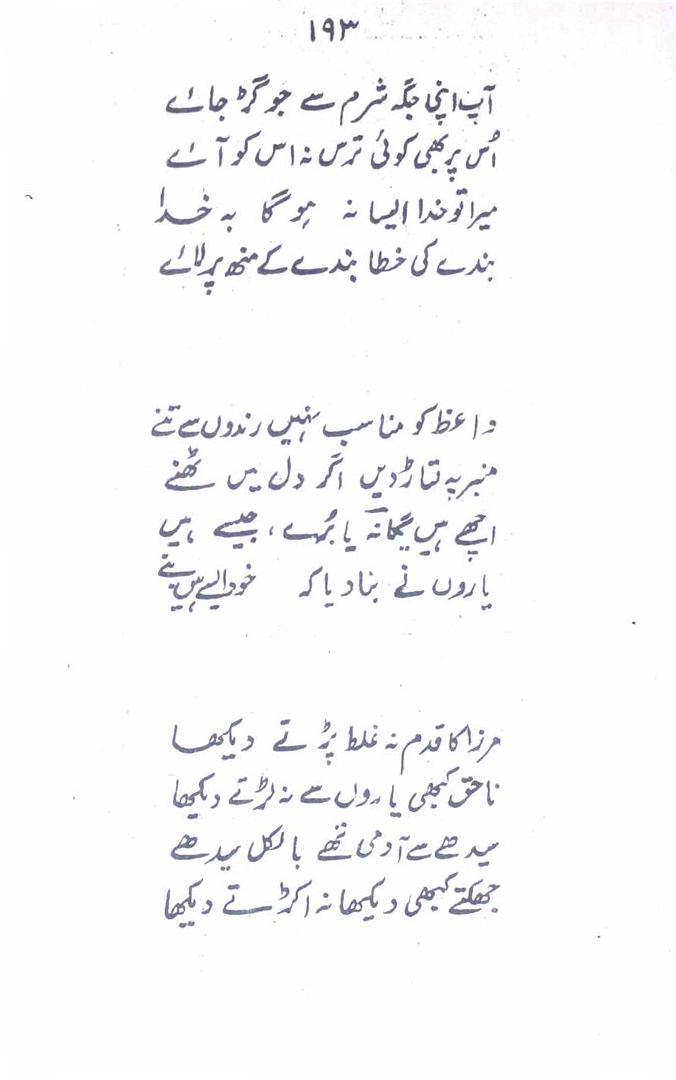 ۱۹۳
آپ اپنی جگہ شرم سے جو گڑ جائے
اُس پر بھی کوئی ترس نہ اس کو آئے
میرا تو خدا ایسا نہ ہوگا بہ خدا
بندے کی خطا بندے کے منھ پر لائے
واعظ کو مناسب نہیں رندوں سے تنے
منبر پہ لتاڑ دیں اگر دل میں ٹھنے
اچھے ہیں یگانہؔ یا بُرے، جیسے ہیں
یاروں نے بنا دیا کہ خود ایسے بنے
مرزا کا قدم نہ غلط پڑتے دیکھا
ناحق کبھی یاروں سے نہ لڑتے دیکھا
سیدھے سے آدمی تھے بالکل سیدھے
جھکتے کبھی دیکھا نہ اکڑتے دیکھا